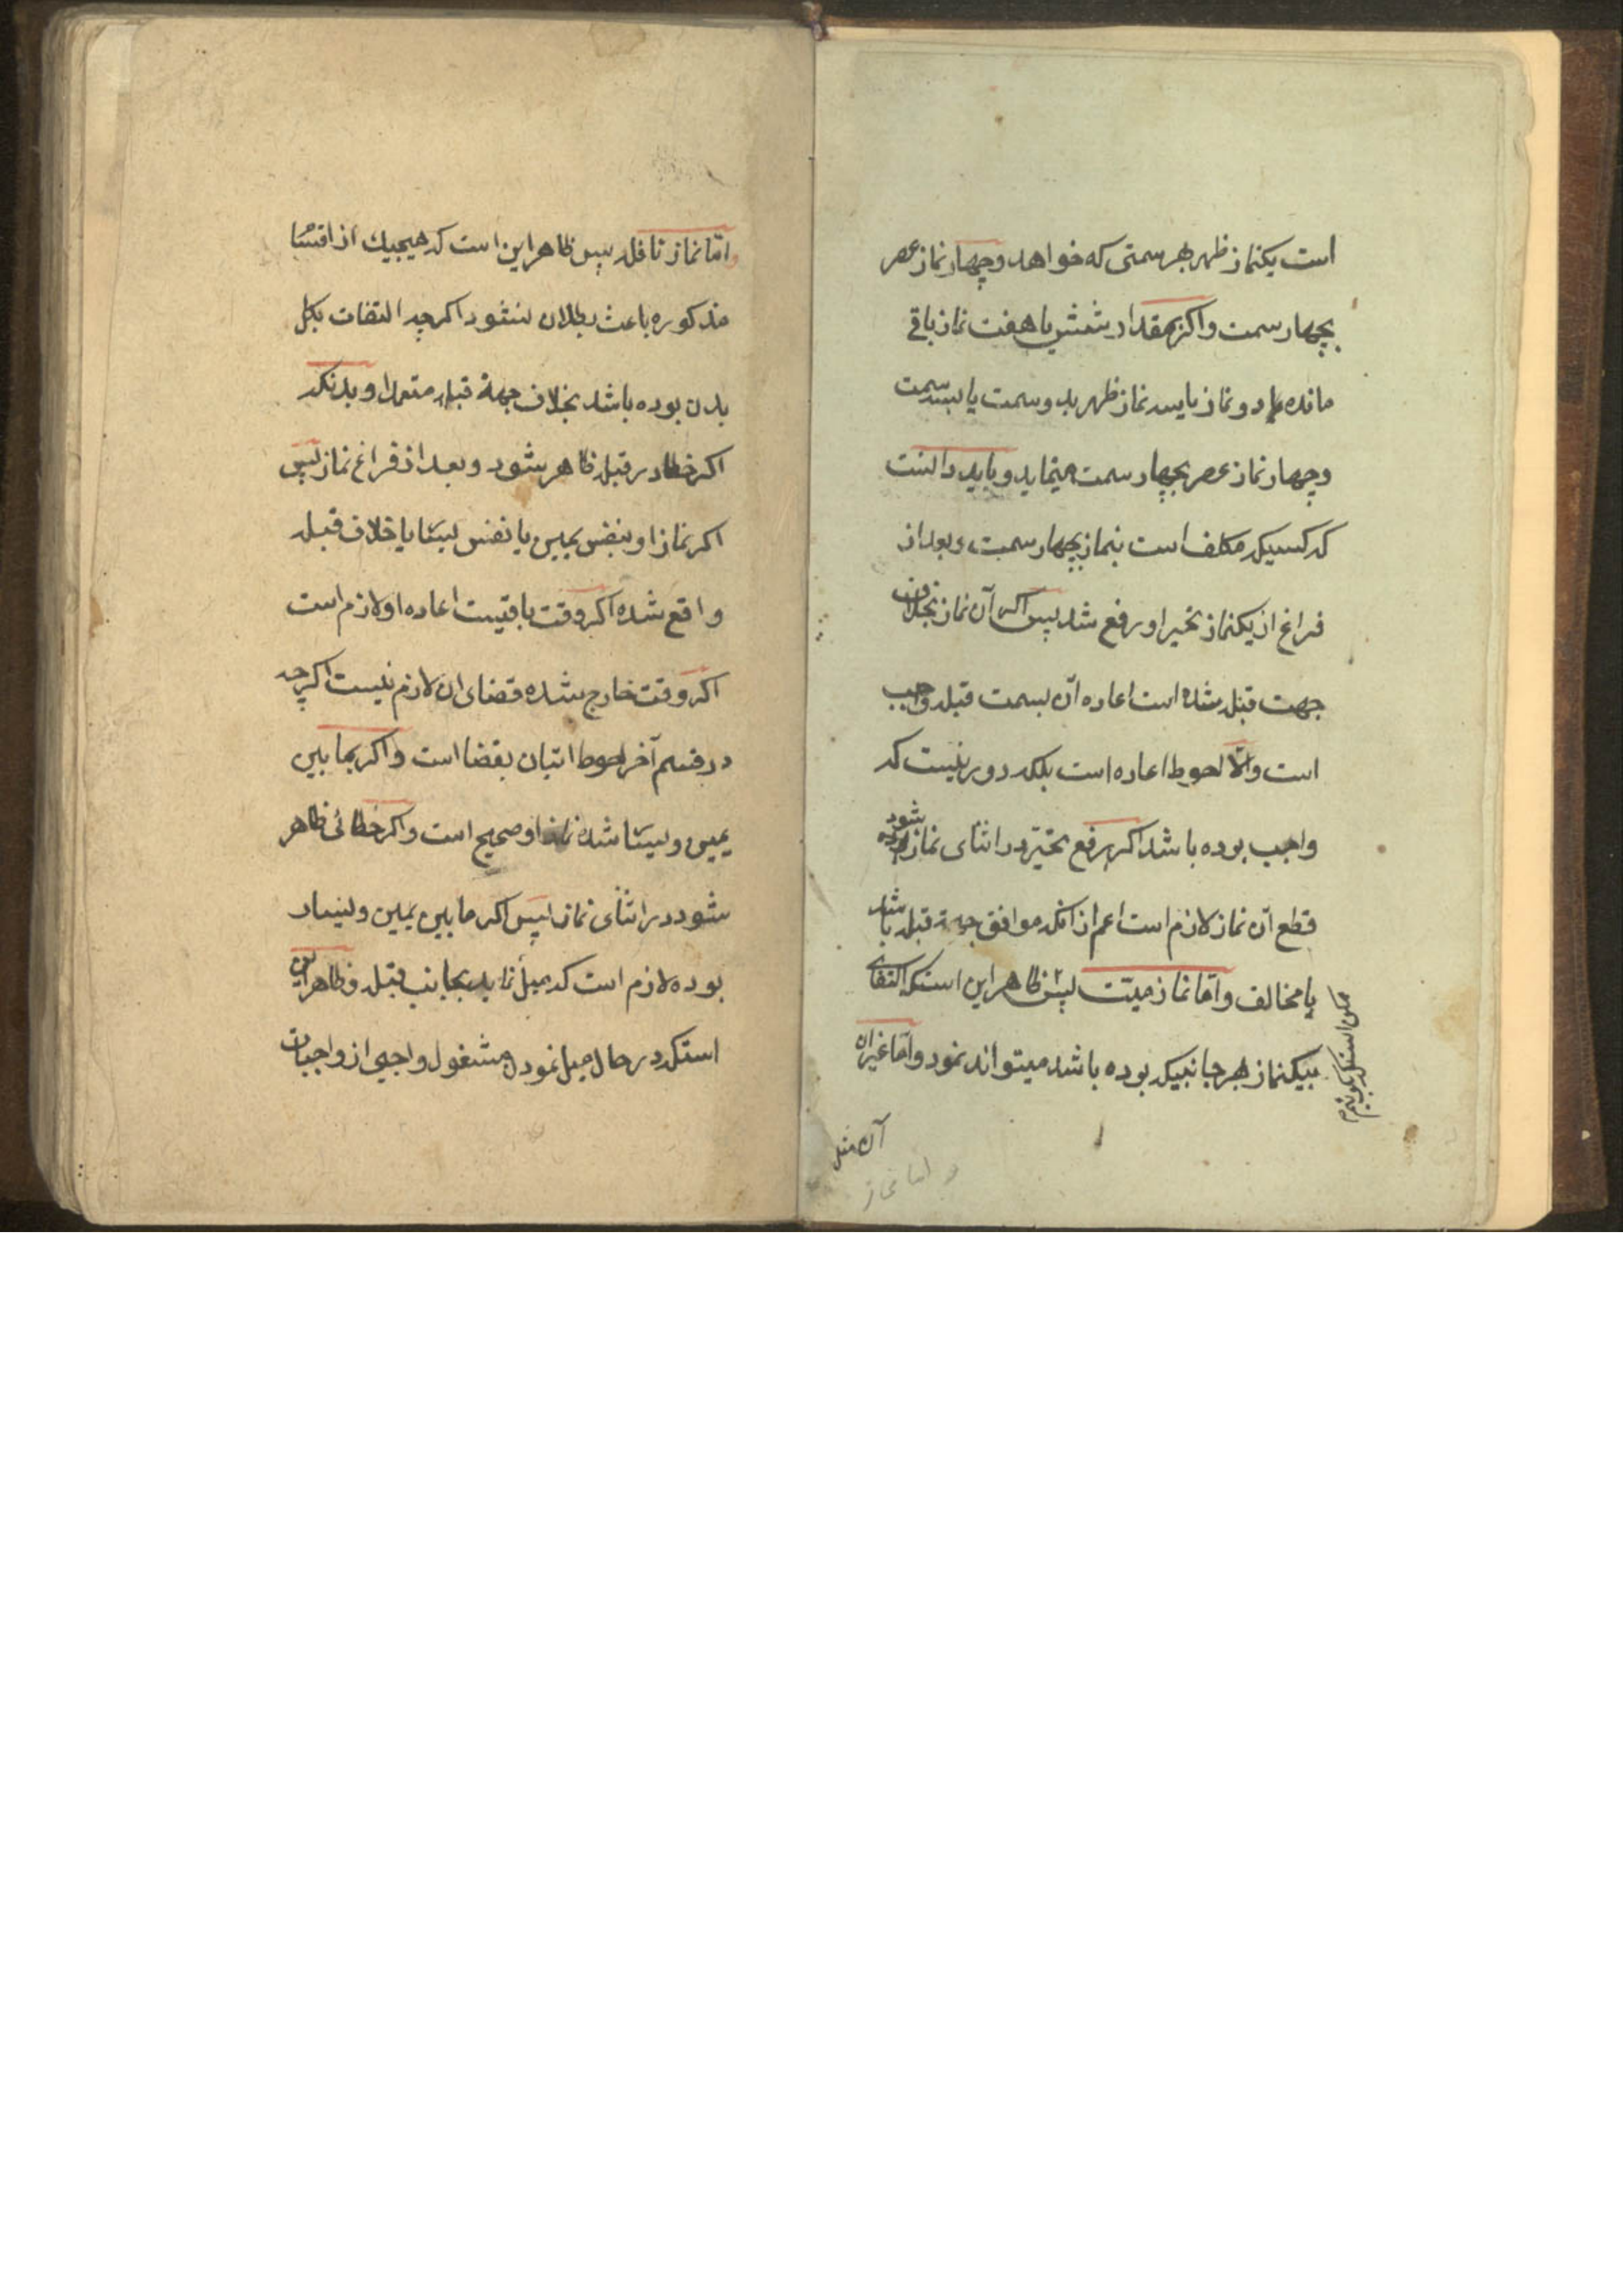 است یکنماز ظهر بهر سمتی که خواهد و چهار نماز عصر
بچهار سمت و اکر بمقدار شش یا هفت نماز باقی
مانده یا دو نماز یا سه نماز ظهر بدو سمت یا بسه سمت
و چهار نماز عصر بچهار سمت مینماید و باید دانست
که کسیکه مکلف است بنماز بچهار سمت و بعد از
فراغ از یکنماز تحیر او رفع شد پس اکر آن نماز بخلاف
جهت قبله شده است اعاده آن بسمت قبله واجب
است والّا احوط اعاده است بلکه دور نیست که
واجب بوده باشد اکر رفع تحیّر در اثنای نماز شود
قطع آن نماز لازم است اعم از آنکه موافق جهة قبله باشد
یا مخالف و امّا نماز میّت پس ظاهر این استکه اکتفای
بیکنماز بهر جانبیکه بوده باشد میتواند نمود و امّا غیر از
ممکن استکه بکوئیم
آن مثل
و اما نماز
و امّا نماز نافله پس ظاهر این است که هیچیك از اقسا
مذکوره باعث بطلان نشود اکرچه التفات بکل
بدن بوده باشد بخلاف جهة قبله متعمدا و بدنکه
اکر خطا در قبله ظاهر شود و بعد از فراغ نماز پس
اکر نماز او بنفس یمین یا نفس یسا یا خلاف قبله
واقع شده اکر وقت باقیست اعاده او لازم است
اکر وقت خارج شده قضای ان لازم نیست اکرچه
در قسم آخر احوط اتیان بقضا است و اکر بما بین
یمین و یسا شده نماز او صحیح است و اکر خطائی ظاهر
شود در اثنای نماز پس اکر ما بین یمین و یسار
بوده لازم است که میل نماید بجانب قبله و ظاهر این
استکه در حال میل نمودن مشغول واجبی از واجبات